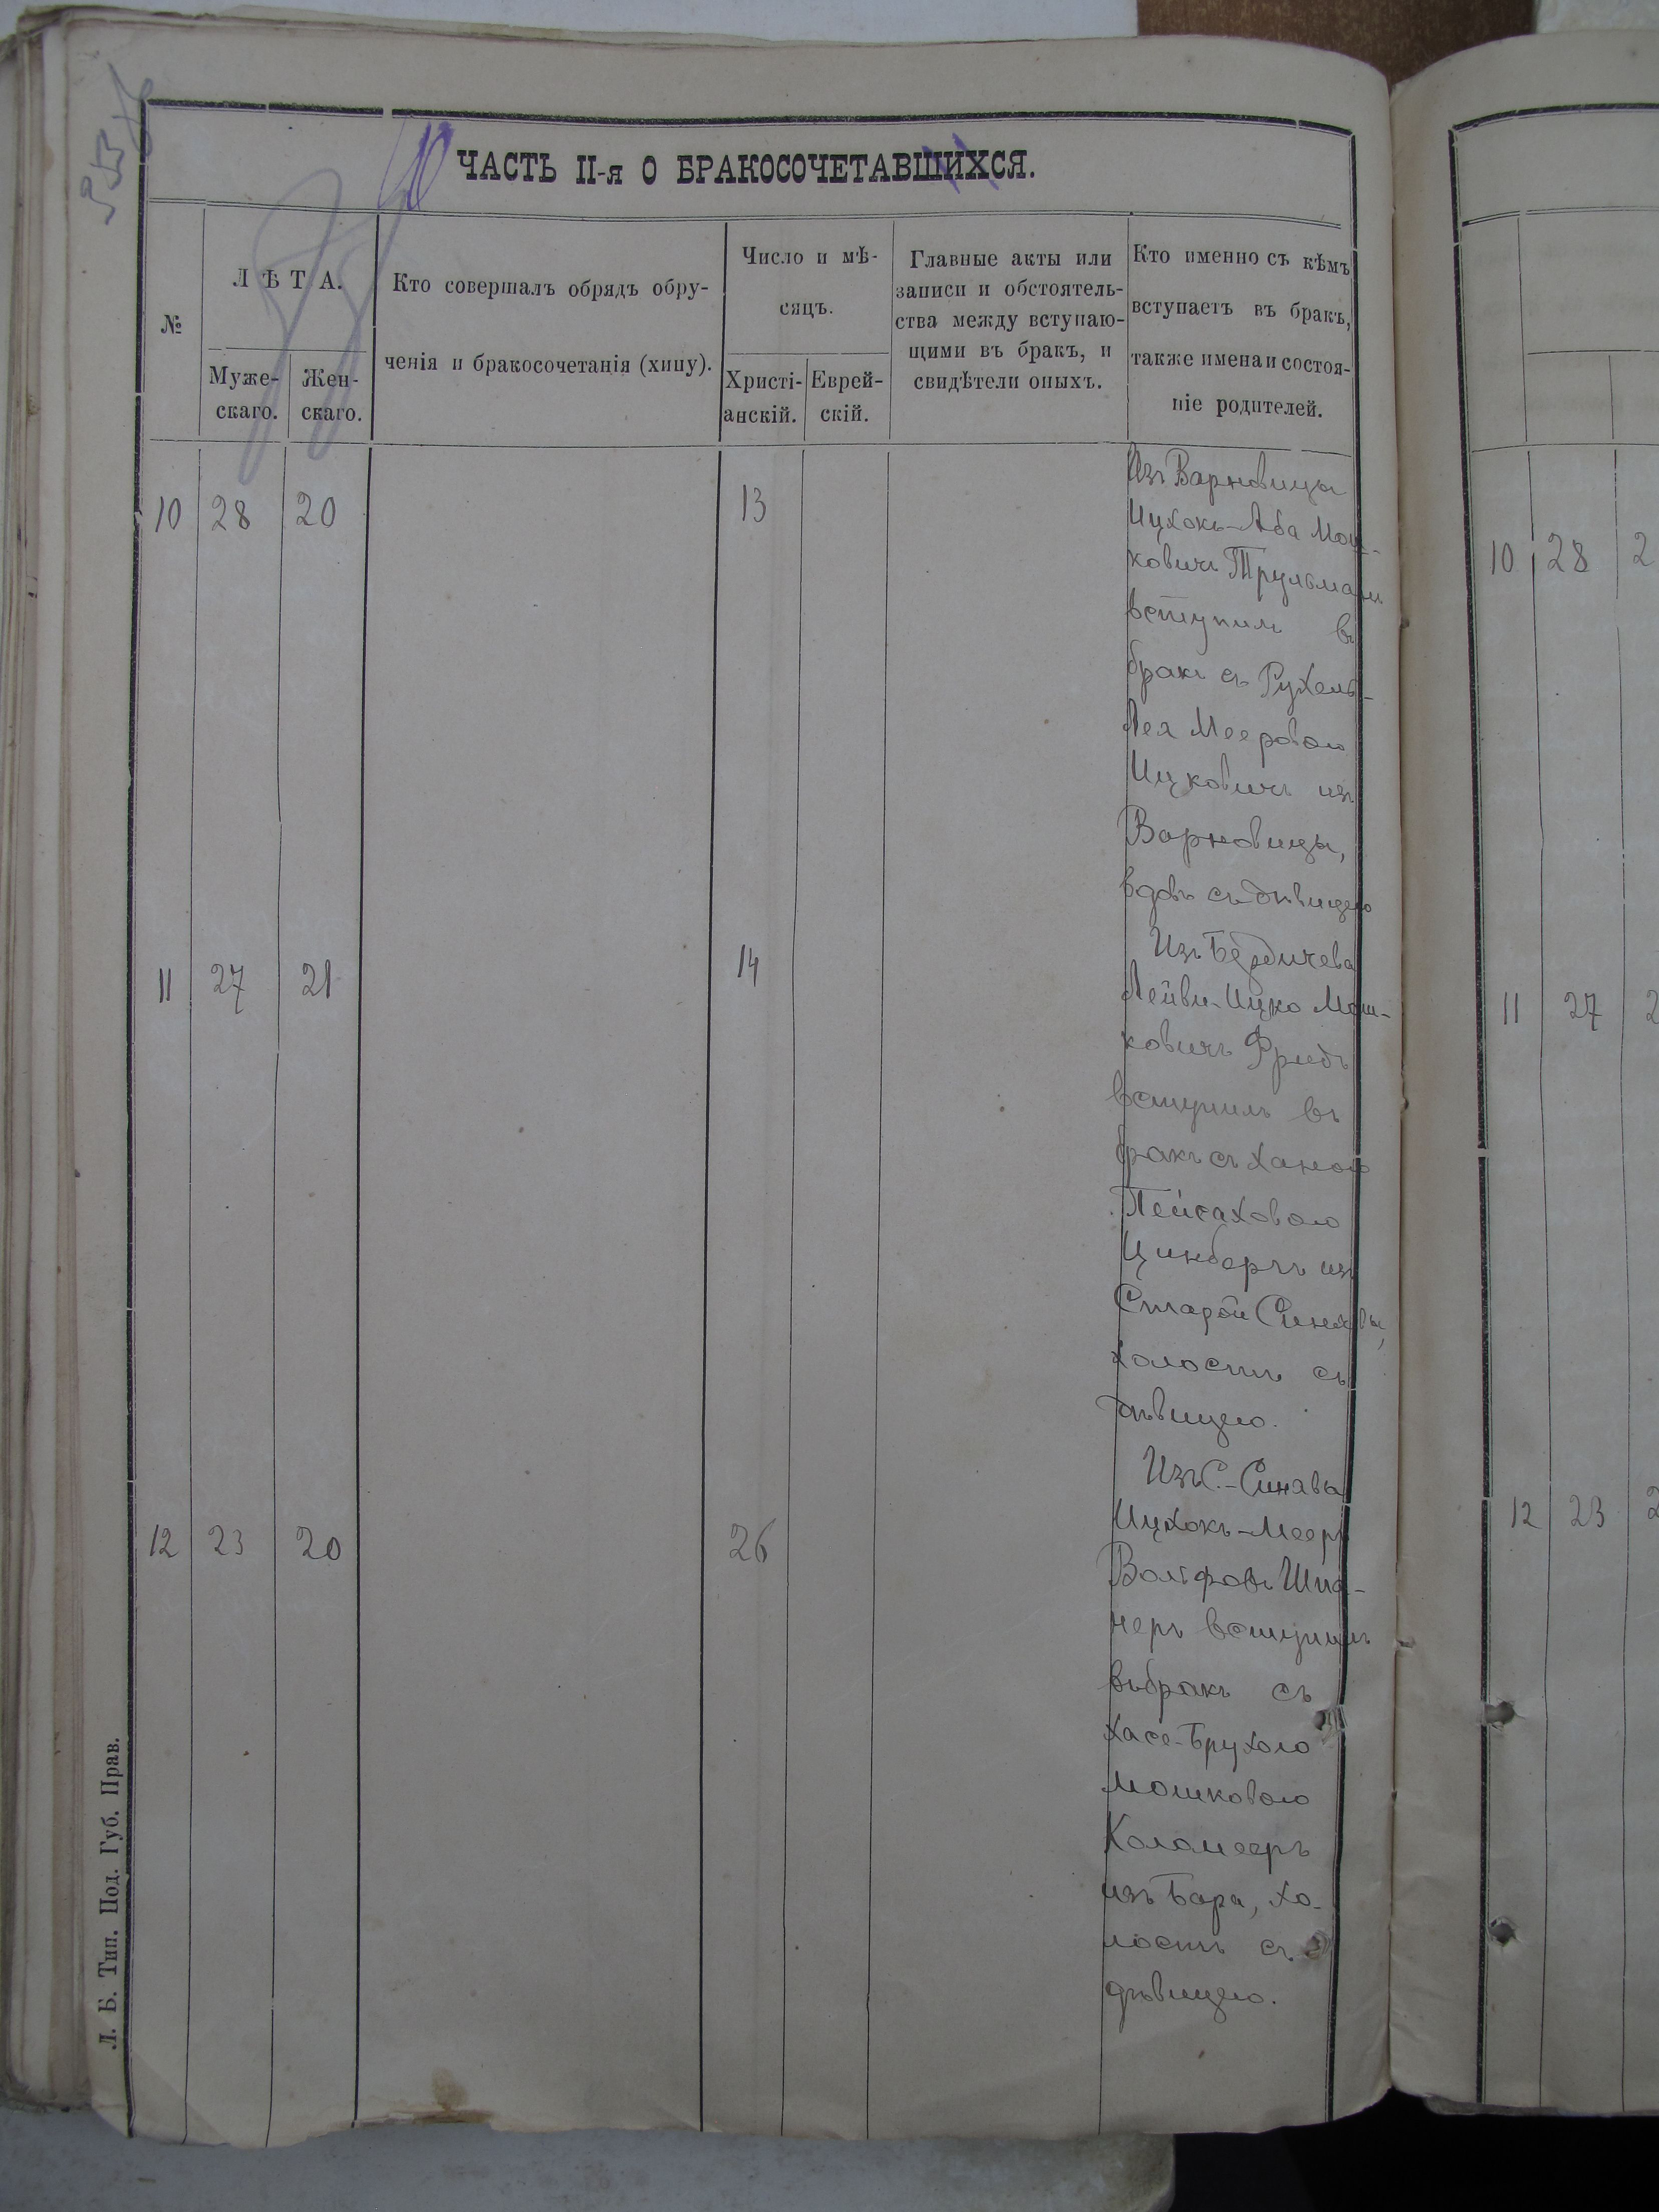 ЧАСТЬ II-я О БРАКОСОЧЕТАВШИХСЯ.
№
ЛѢТА.
Муже-
скаго.
Жен-
скаго.
Кто совершалъ обрядъ обру-
ченія и бракосочетанія (хипу).
Число и мѣ-
сяцъ.
Христі-
анскій.
Еврей-
скій.
Главные акты или
записи и обстоятель-
ства между вступаю-
щими въ бракъ, и
свидѣтели оныхъ.
Кто именно съ кѣмъ
вступаетъ въ бракъ,
также имена и состоя-
ніе родителей.
10 28 20 13
Изъ Варновицы
Ицхокъ-Аба Мош-
ковичъ Трульманъ
вступилъ въ
бракъ съ Рухель-
Лея Мееровою
Ицковичъ изъ
Варновицы,
вдовъ съ дѣвицею
11 27 21 14
Изъ Бердичева
Лейви-Ицко Мош-
ковичъ Фридъ
вступилъ въ
бракъ съ Ханою
Пейсаховою
Цинбергъ изъ
Старой Синявы,
холостъ съ
дѣвицею.
12 23 20 26
Изъ С.-Синявы
Ицхокъ-Мееръ
Вольфовъ Шпа-
черъ вступилъ
въ бракъ съ
Хасе-Брухою
Мошковою
Коломееръ
изъ Бара, хо-
лостъ съ
дѣвицею.
Л. Б. Тип. Под. Губ. Прав.
10 28 2
11 27 2
12 23 2